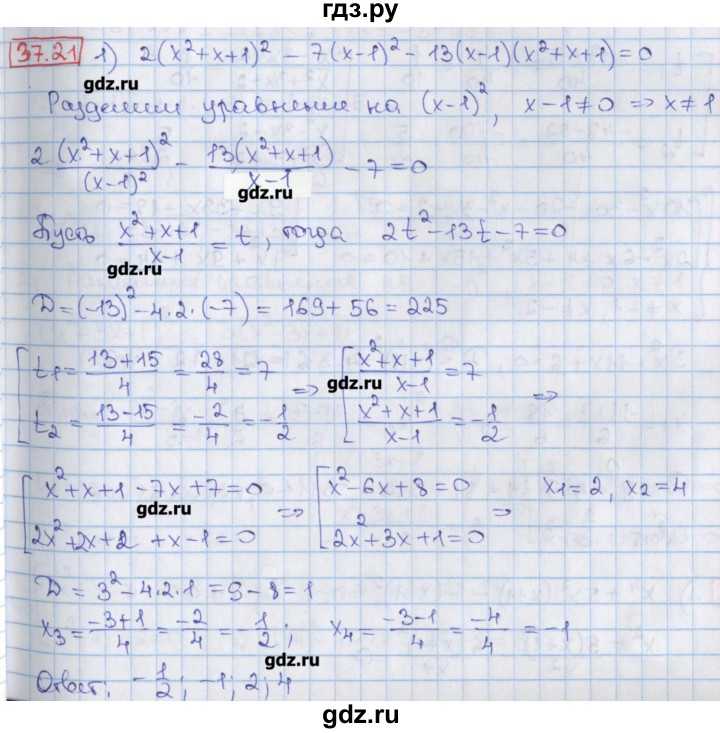 гдз.ру
37.21 1) 2(x²+x+1)² - 7(x-1)² - 13(x-1)(x²+x+1)=0
gdz.ru
Разделим уравнение на (x-1)², x-1≠0 => x≠1
2 (x²+x+1)²/(x-1)² - 13(x²+x+1)/x-1 - 7=0
gdz.ru
Пусть x²+x+1/x-1 = t, тогда 2t²-13t-7=0
gdz.ru
D=(-13)²-4·2·(-7)=169+56=225
[t1=13+15/4=28/4=7 => [x²+x+1/x-1=7
gdz.ru
t2=13-15/4=-2/4=-1/2 x²+x+1/x-1=-1/2 =>
[x²+x+1-7x+7=0 => [x²-6x+8=0 => x1=2, x2=4
gdz.ru
2x²+2x+2 +x-1=0 2x²+3x+1=0
D=3²-4·2·1=9-8=1
x3=-3+1/4=-2/4=-1/2; x4=-3-1/4=-4/4=-1
gdz.ru
Ответ: -1/2; -1; 2; 4
gdz.ru